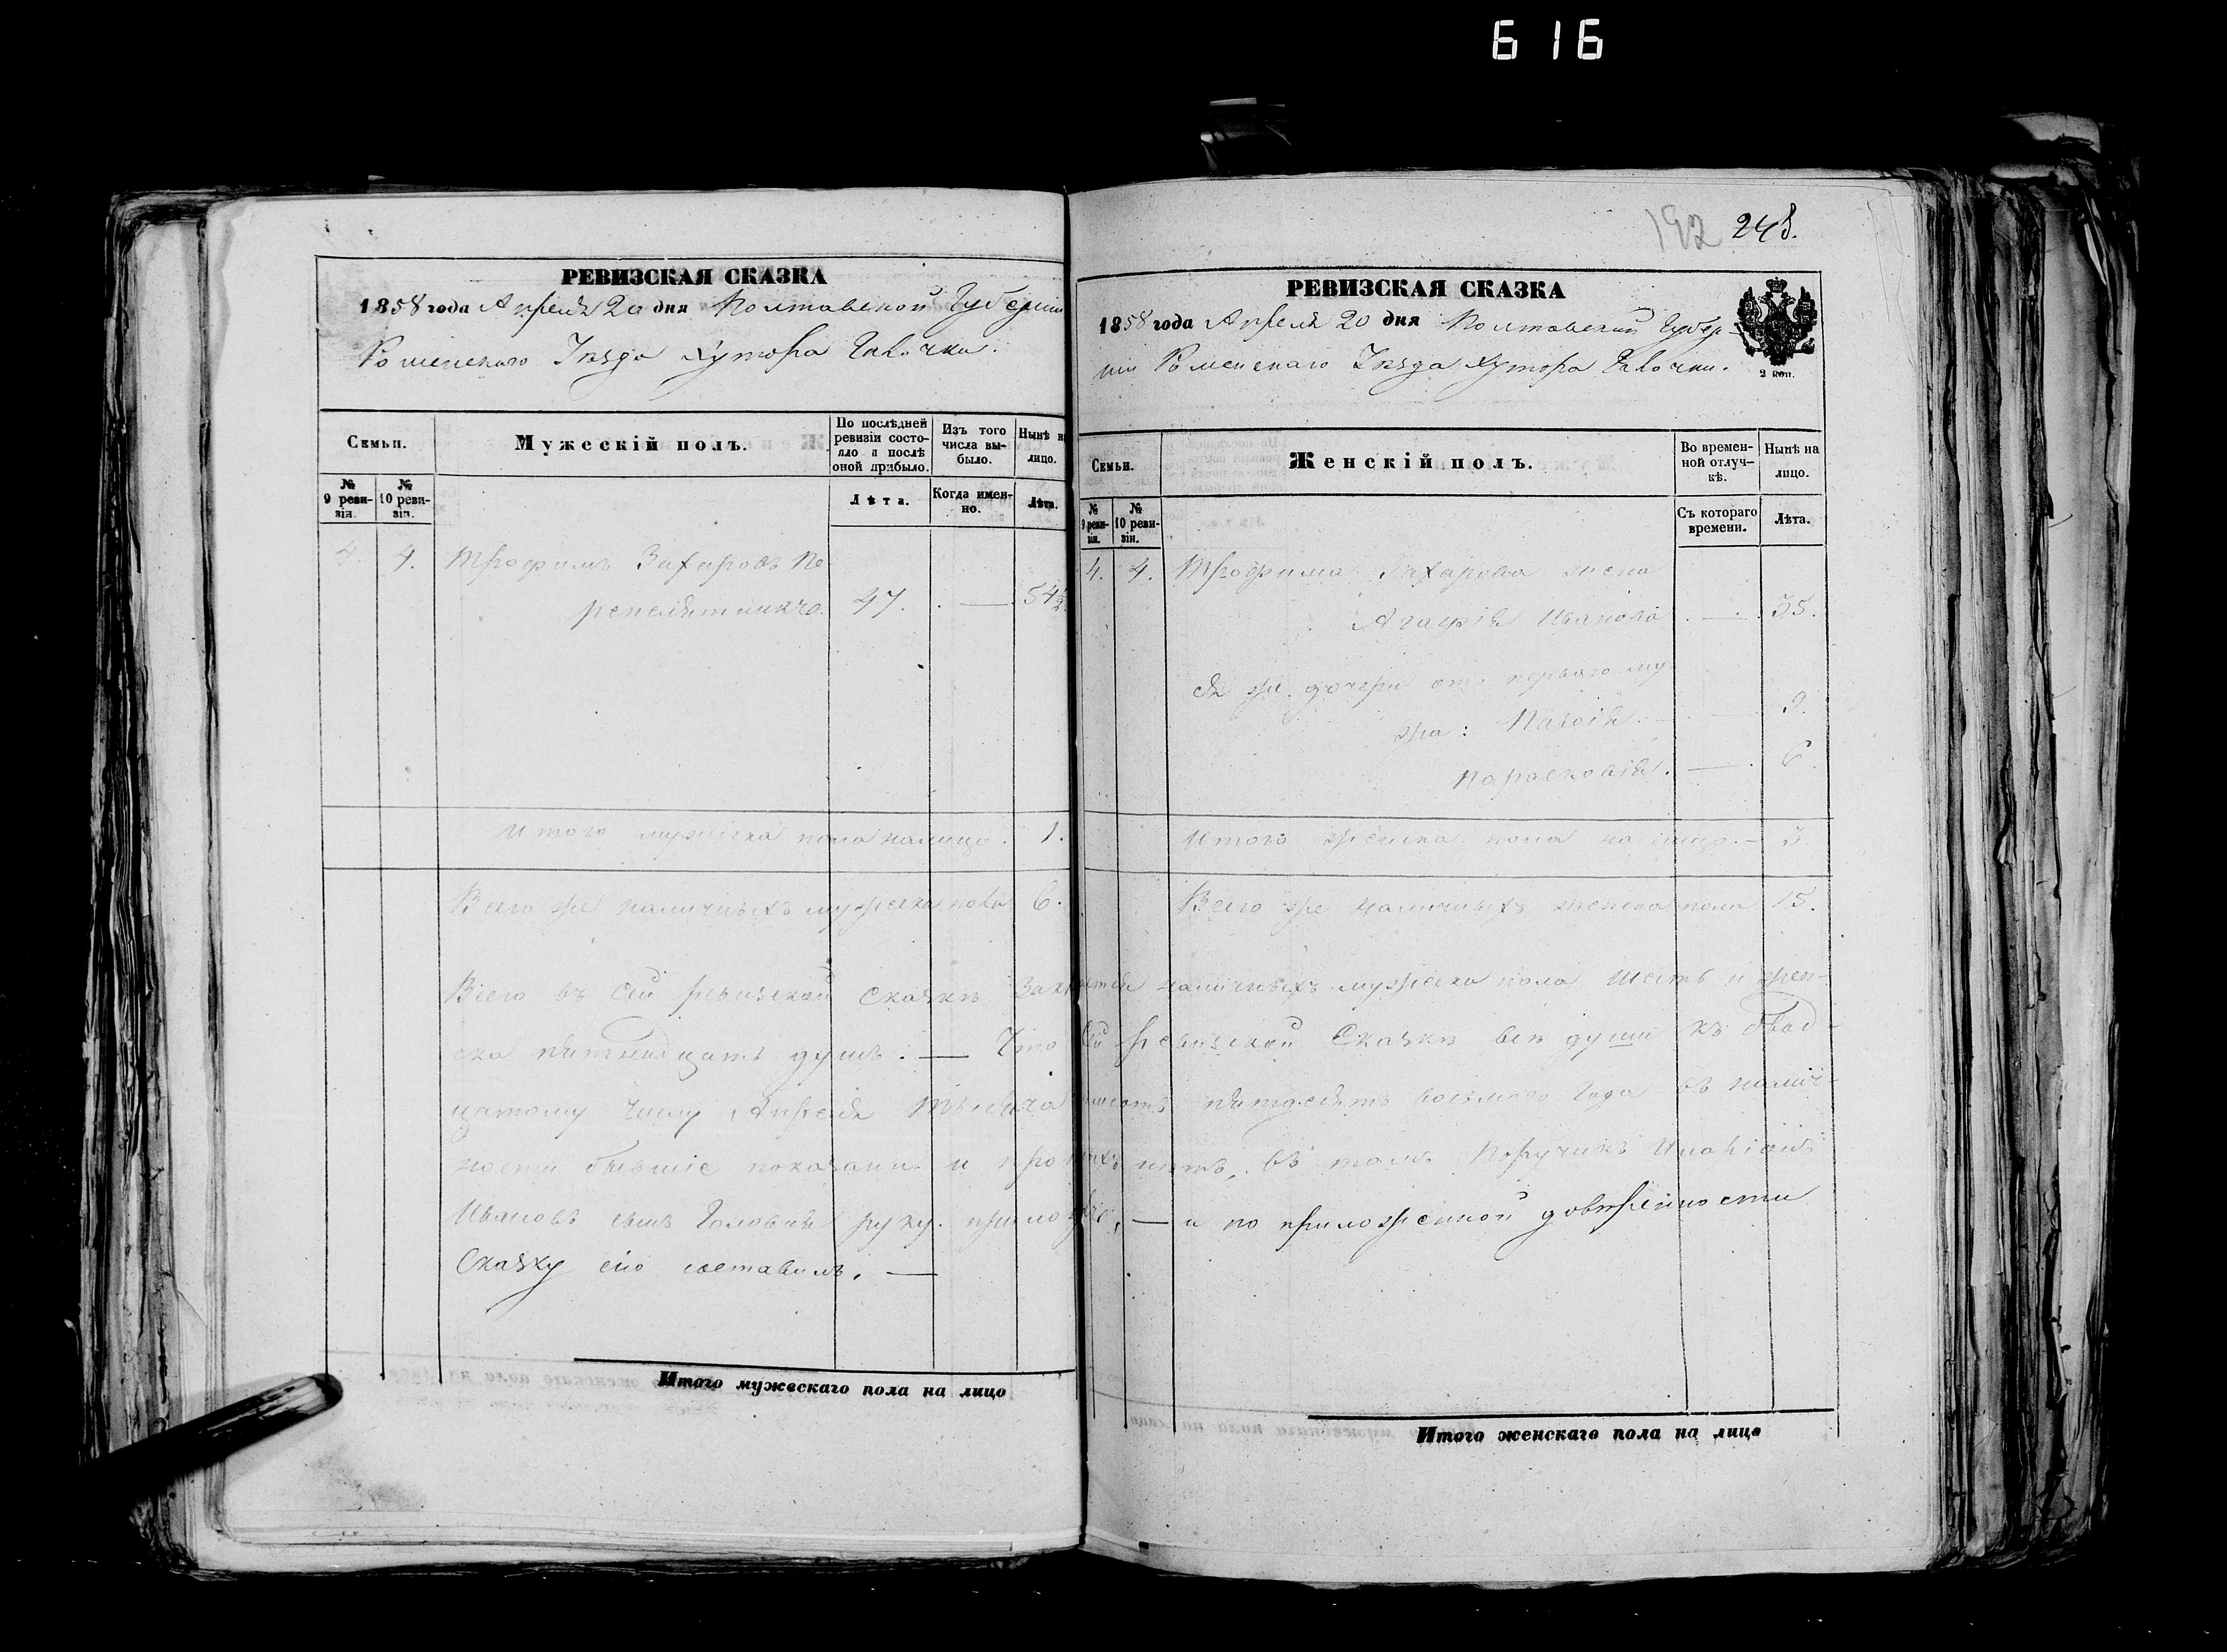 616
192 248.
РЕВИЗСКАЯ СКАЗКА
1858 года Апреля 20 дня Полтавской Губернии
Роменскаго Уезда хутора
Семьи.
Мужескій полъ.
По послѣдней ревизіи состояло и послѣ оной прибыло.
Изъ того числа выбыло.
Нынѣ на лицо.
№ 9 ревизіи.
№ 10 ревизіи.
Лѣта.
Когда именно.
Лѣта.
4. 4. Трофимъ Захаровъ Пе
репелятниковъ 47. — 54½
Итого мужеска пола налицо. 1.
Всего же наличныхъ мужеска пола 6.
РЕВИЗСКАЯ СКАЗКА
1858 года Апреля 20 дня Полтавской Губер-
ніи Роменскаго Уезда хутора
2 коп.
Семьи.
Женскій полъ.
Во временной отлучкѣ.
Нынѣ на лицо.
№ 9 ревизіи.
№ 10 ревизіи.
Съ котораго времени.
Лѣта.
4. 4. Трофима Захарова жена
Иванова — 35.
Ея же дочери отъ перваго му-
жа: — 9.
Парасковія. — 6.
Итого женска пола на лицо. — 3.
Всего же наличныхъ женска пола 15.
Всего въ сей ревизской сказкѣ наличныхъ мужеска пола шесть и жен-
ска пятнадцать душъ. — Что сей ревизской сказкѣ все души къ двад-
цатому числу Апреля пятдесятъ восьмого Года въ налич-
ности бывшіе показани и нетъ, въ томъ Поручикъ
Ивановъ сынъ Головня руку приложилъ, — и по приложенной довѣренности
Сказку сію составилъ. —
Итого мужескаго пола на лицо
Итого женскаго пола на лицо